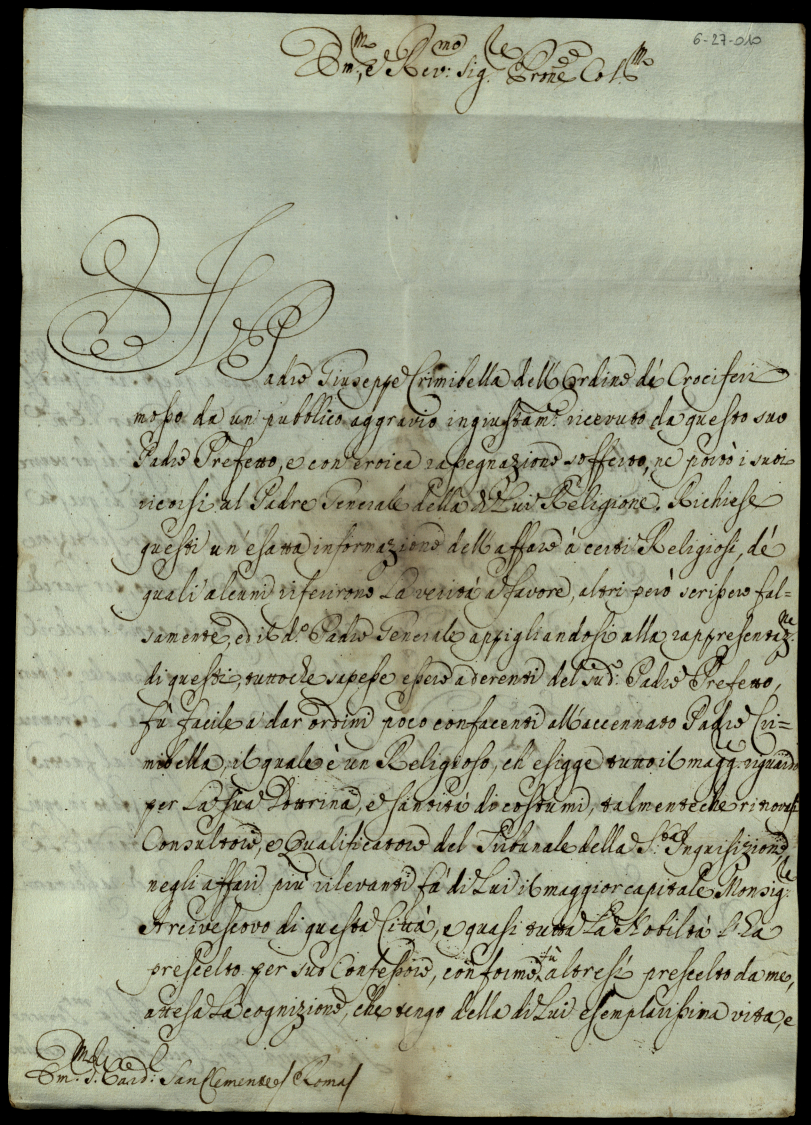 6-27-010
Em.mo e Rev.mo Sig.re Prone Col.mo
Il Padre Giuseppe Crimibella dell'Ordine dè Crociferi
mosso da un pubblico aggravio ingiustam.e ricevuto da questo suo
Padre Prefetto, e con eroica rassegnazione sofferto, ne portò i suoi
ricorsi al Padre Generale della di Lui Religione. Richiese
questi un esatta informazione dell'affare à certi Religiosi, dè
quali alcuni riferirono la verità a favore, altri però scrissero fal=
samente, ed il d.o Padre Generale appigliandosi alla rappresentaz.ne
di questi, tuttoche sapesse essere aderenti del sud.o Padre Prefetto,
fù facile a dar ordini poco confacenti all'accennato Padre Cri=
mibella, il quale è un Religioso, ch'esigge tutto il magg.r riguardo
per la sua Dottrina, e santità di costumi, talmente che ritrovasi
Consultore, e Qualificatore del Tribunale della S.ta Inquisizione,
negli affari più rilevanti fà di Lui il maggior capitale Monsig.re
Arcivescovo di questa Città, e quasi tutta la Nobiltà l'ha
prescelto per suo Confessore, conforme fù altresì prescelto da me,
attesa la cognizione, che tengo della di Lui esemplarissima vitta, e
Em.mo S.r Card.le San Clemente / Roma /